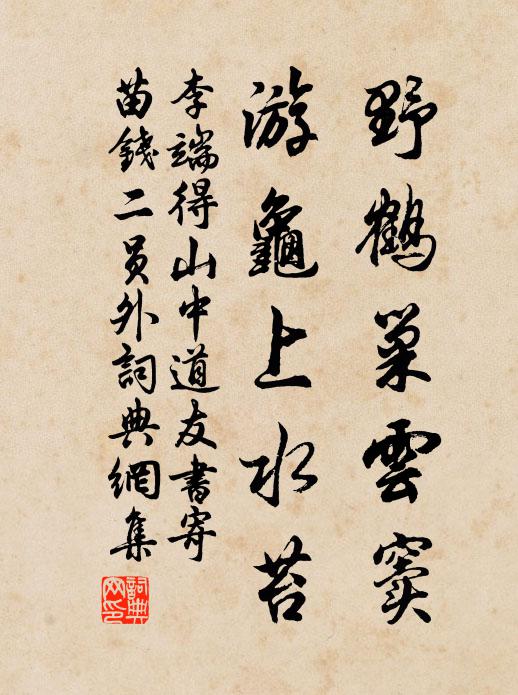 野鶴巢雲竇
游龜上水苔
李端得山中道友書寄
苗錢二員外詞典網集
詞典
網印